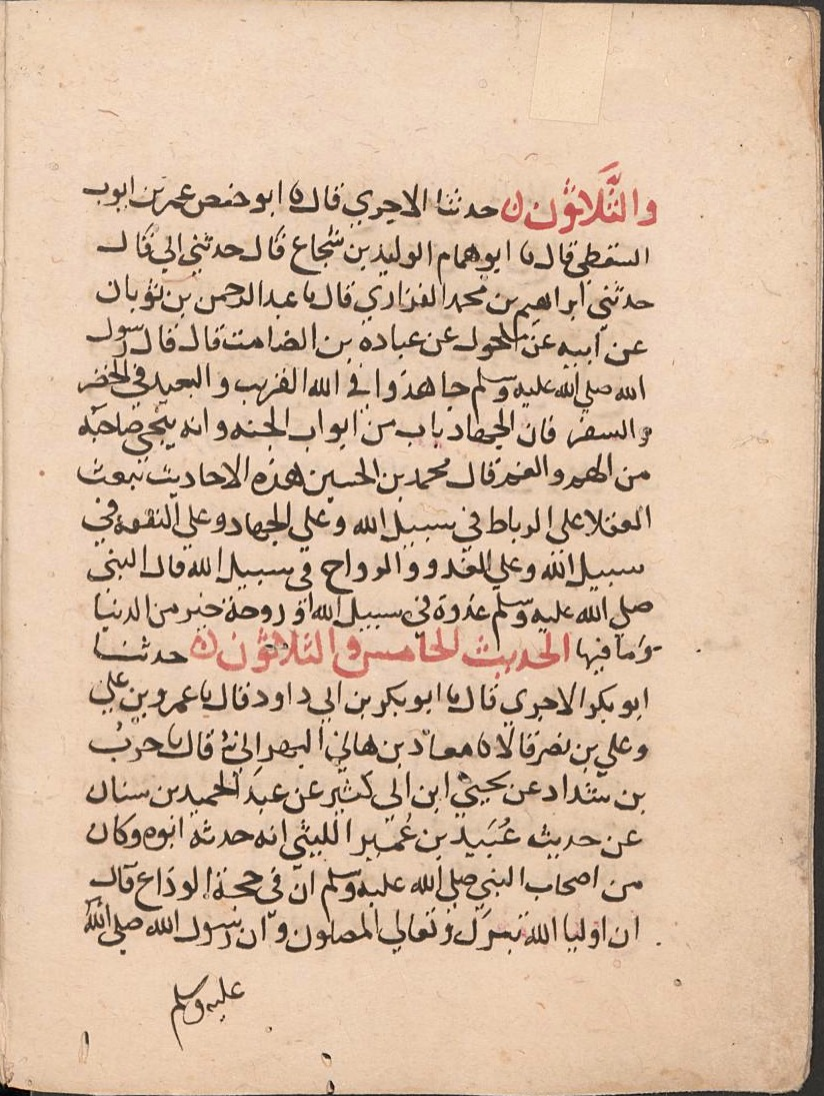 والثَّلاثون ن حدثنا الاجري قال نا ابو حفص عمر بن ايوب
السقطي قال نا ابو همام الوليد بن شجاع قال حدثني ابي قال
حدثني ابراهيم بن محمد الفزاري قال نا عبد الرحمن بن ثوبان
عن ابيه عن مكحول عن عباده بن الصامت قال قال رسول
الله صلي الله عليه وسلم جاهدوا في الله القريب والبعيد في الحضر
والسفر فان الجهاد باب من ابواب الجنه وانه ينجي صاحبه
من الهم والغم قال محمد بن الحسين هذه الاحاديث تبعث
العقلا علي الرباط في سبيل الله وعلي الجهاد وعلي النفقه في
سبيل الله وعلي الغدو والرواح في سبيل الله قال النبي
صلي الله عليه وسلم غدوة في سبيل الله او روحة خير من الدنيا
وما فيها الحديث الخامس والثلاثون ن حدثنا
ابو بكر الاجري قال نا ابو بكر بن ابي داود قال نا عمرو بن علي
وعلي بن نصر قالا نا معاذ بن هاني البهراني قال نا حرب
بن شداد عن يحيي ابن ابي كثير عن عبد الحميد بن سنان
عن حديث عُبَيد بن عُمير الليثي انه حدثه ابوه وكان
من اصحاب النبي صلي الله عليه وسلم ان في حجة الوداع قال
ان اوليا الله تبرك وتعالي المصلون وان رسول الله صلي الله
عليه وسلم